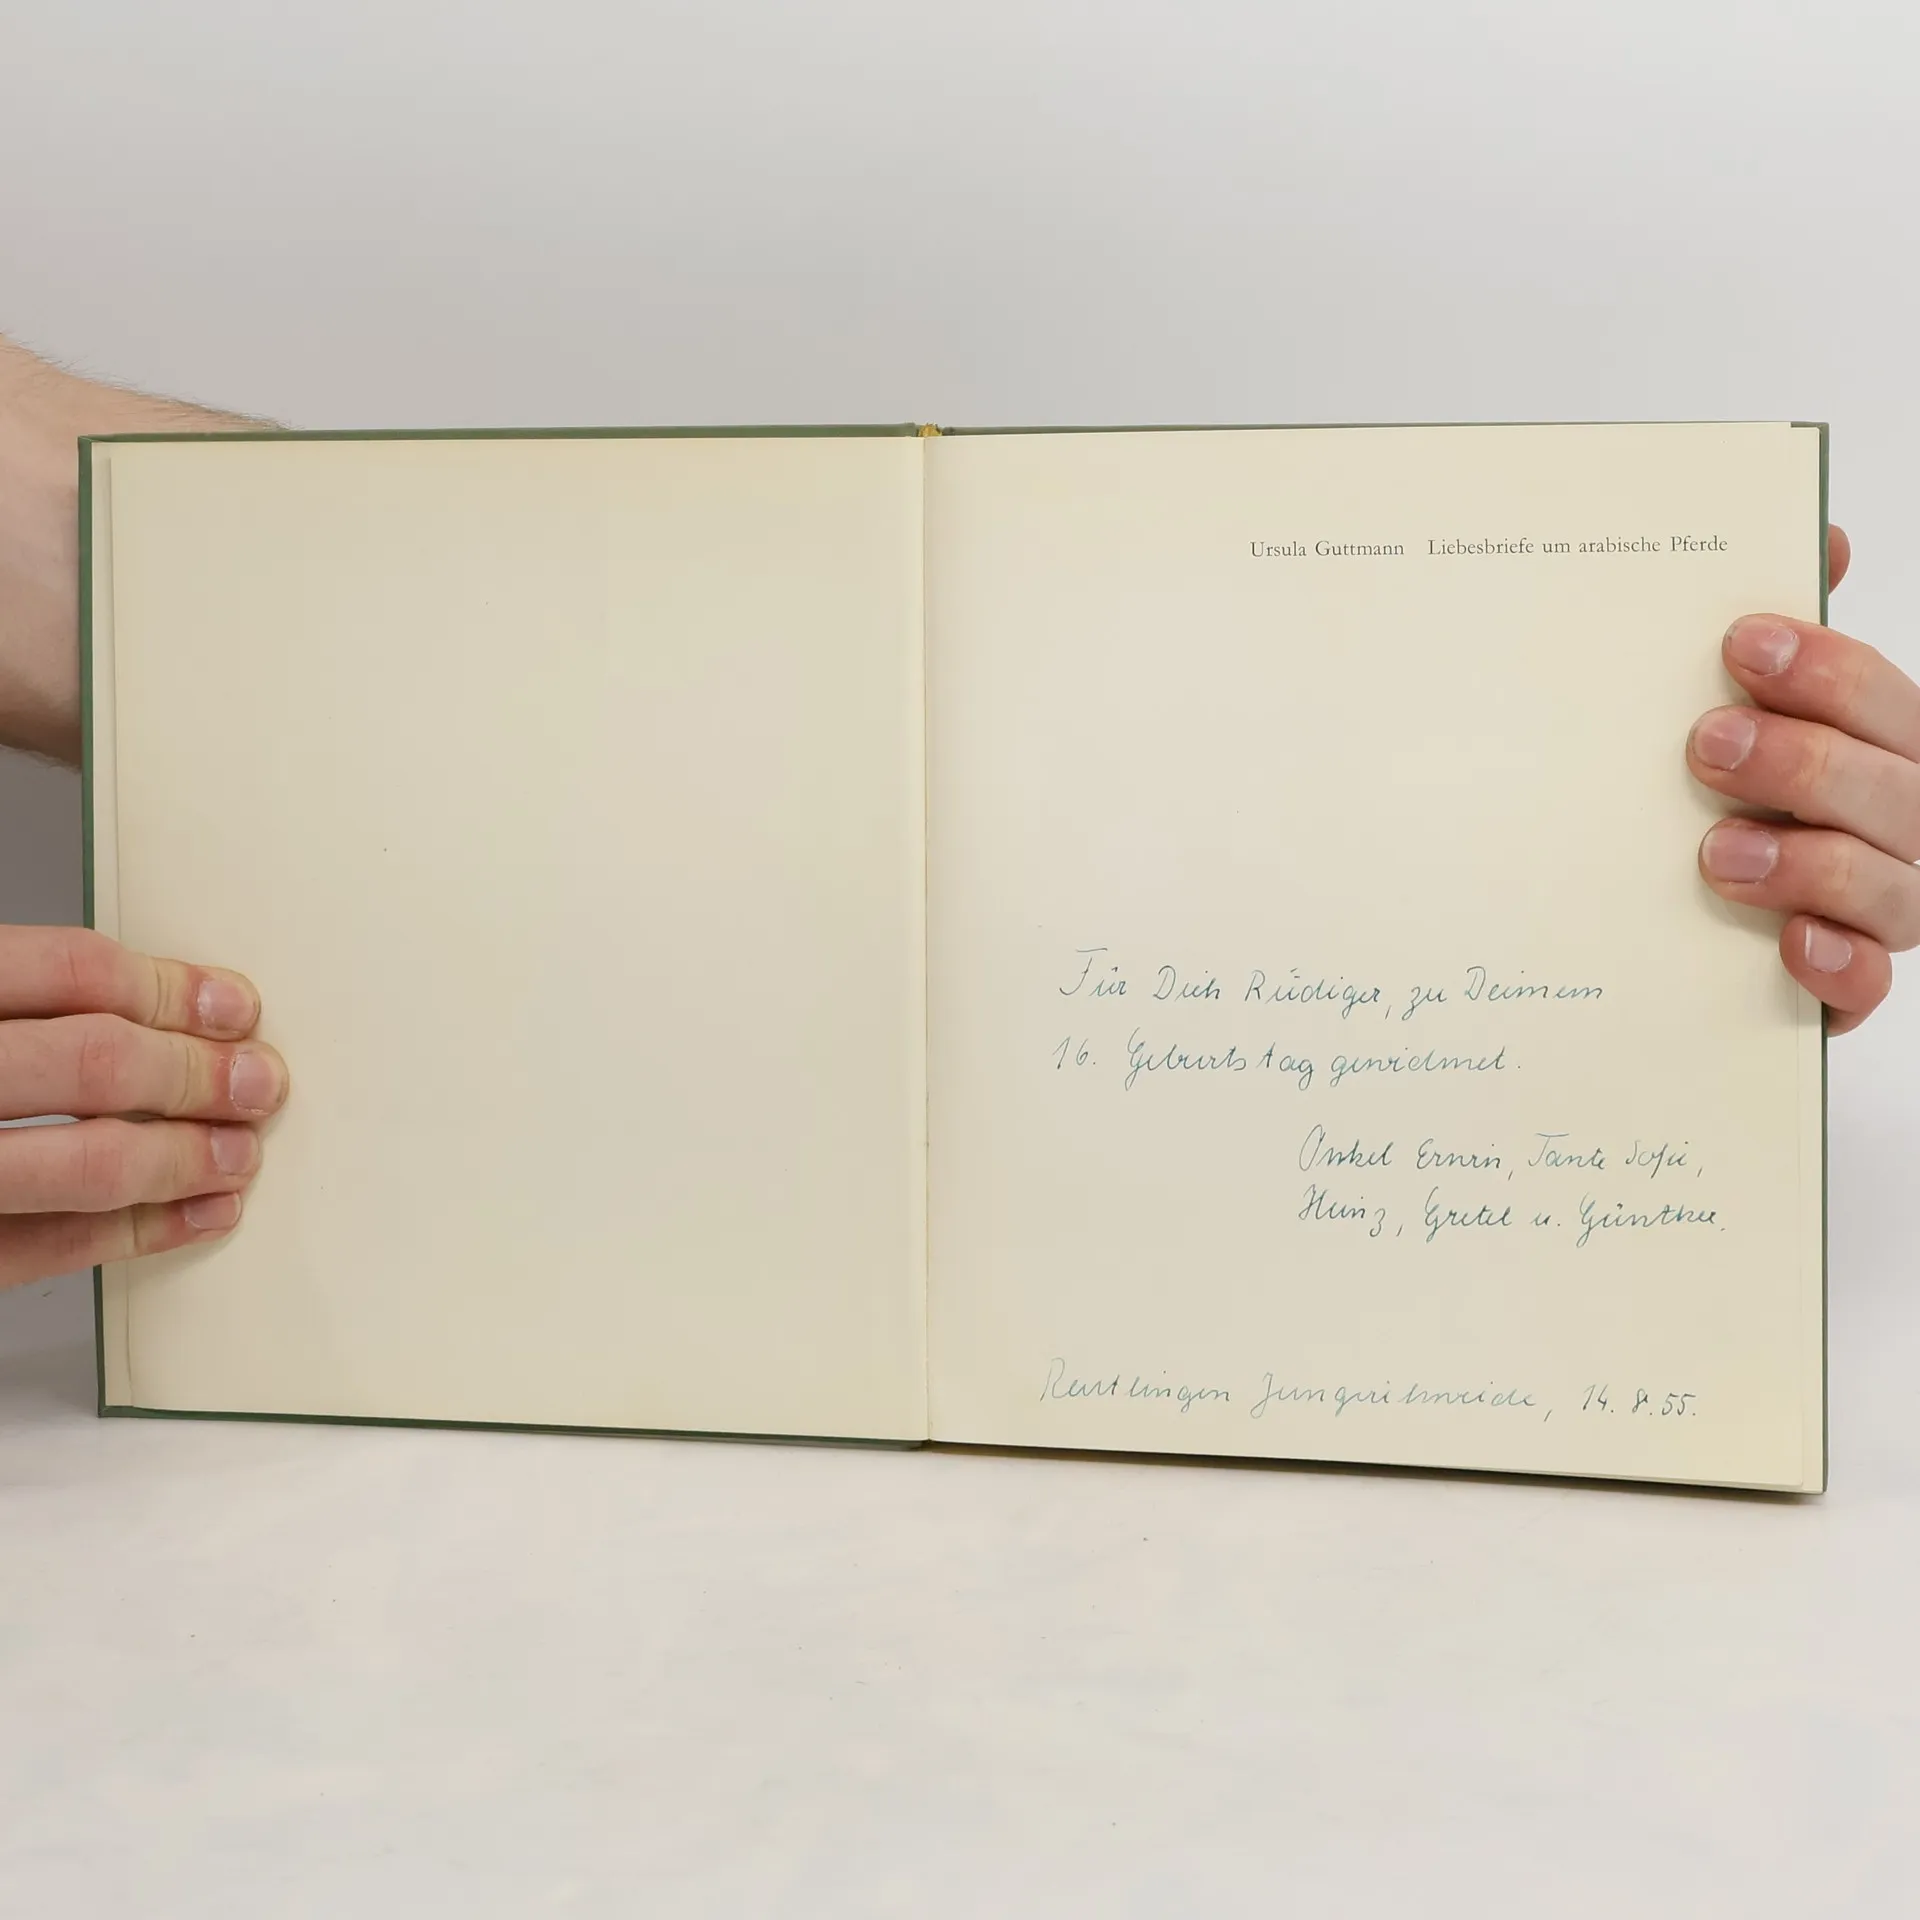 Ursula Guttmann Liebesbriefe um arabische Pferde
Für Dich Rüdiger, zu Deinem
16. Geburtstag gewidmet.
Onkel Erwin, Tante Sofie,
Heinz, Gretel u. Günther.
Reutlingen 14. 8. 55.